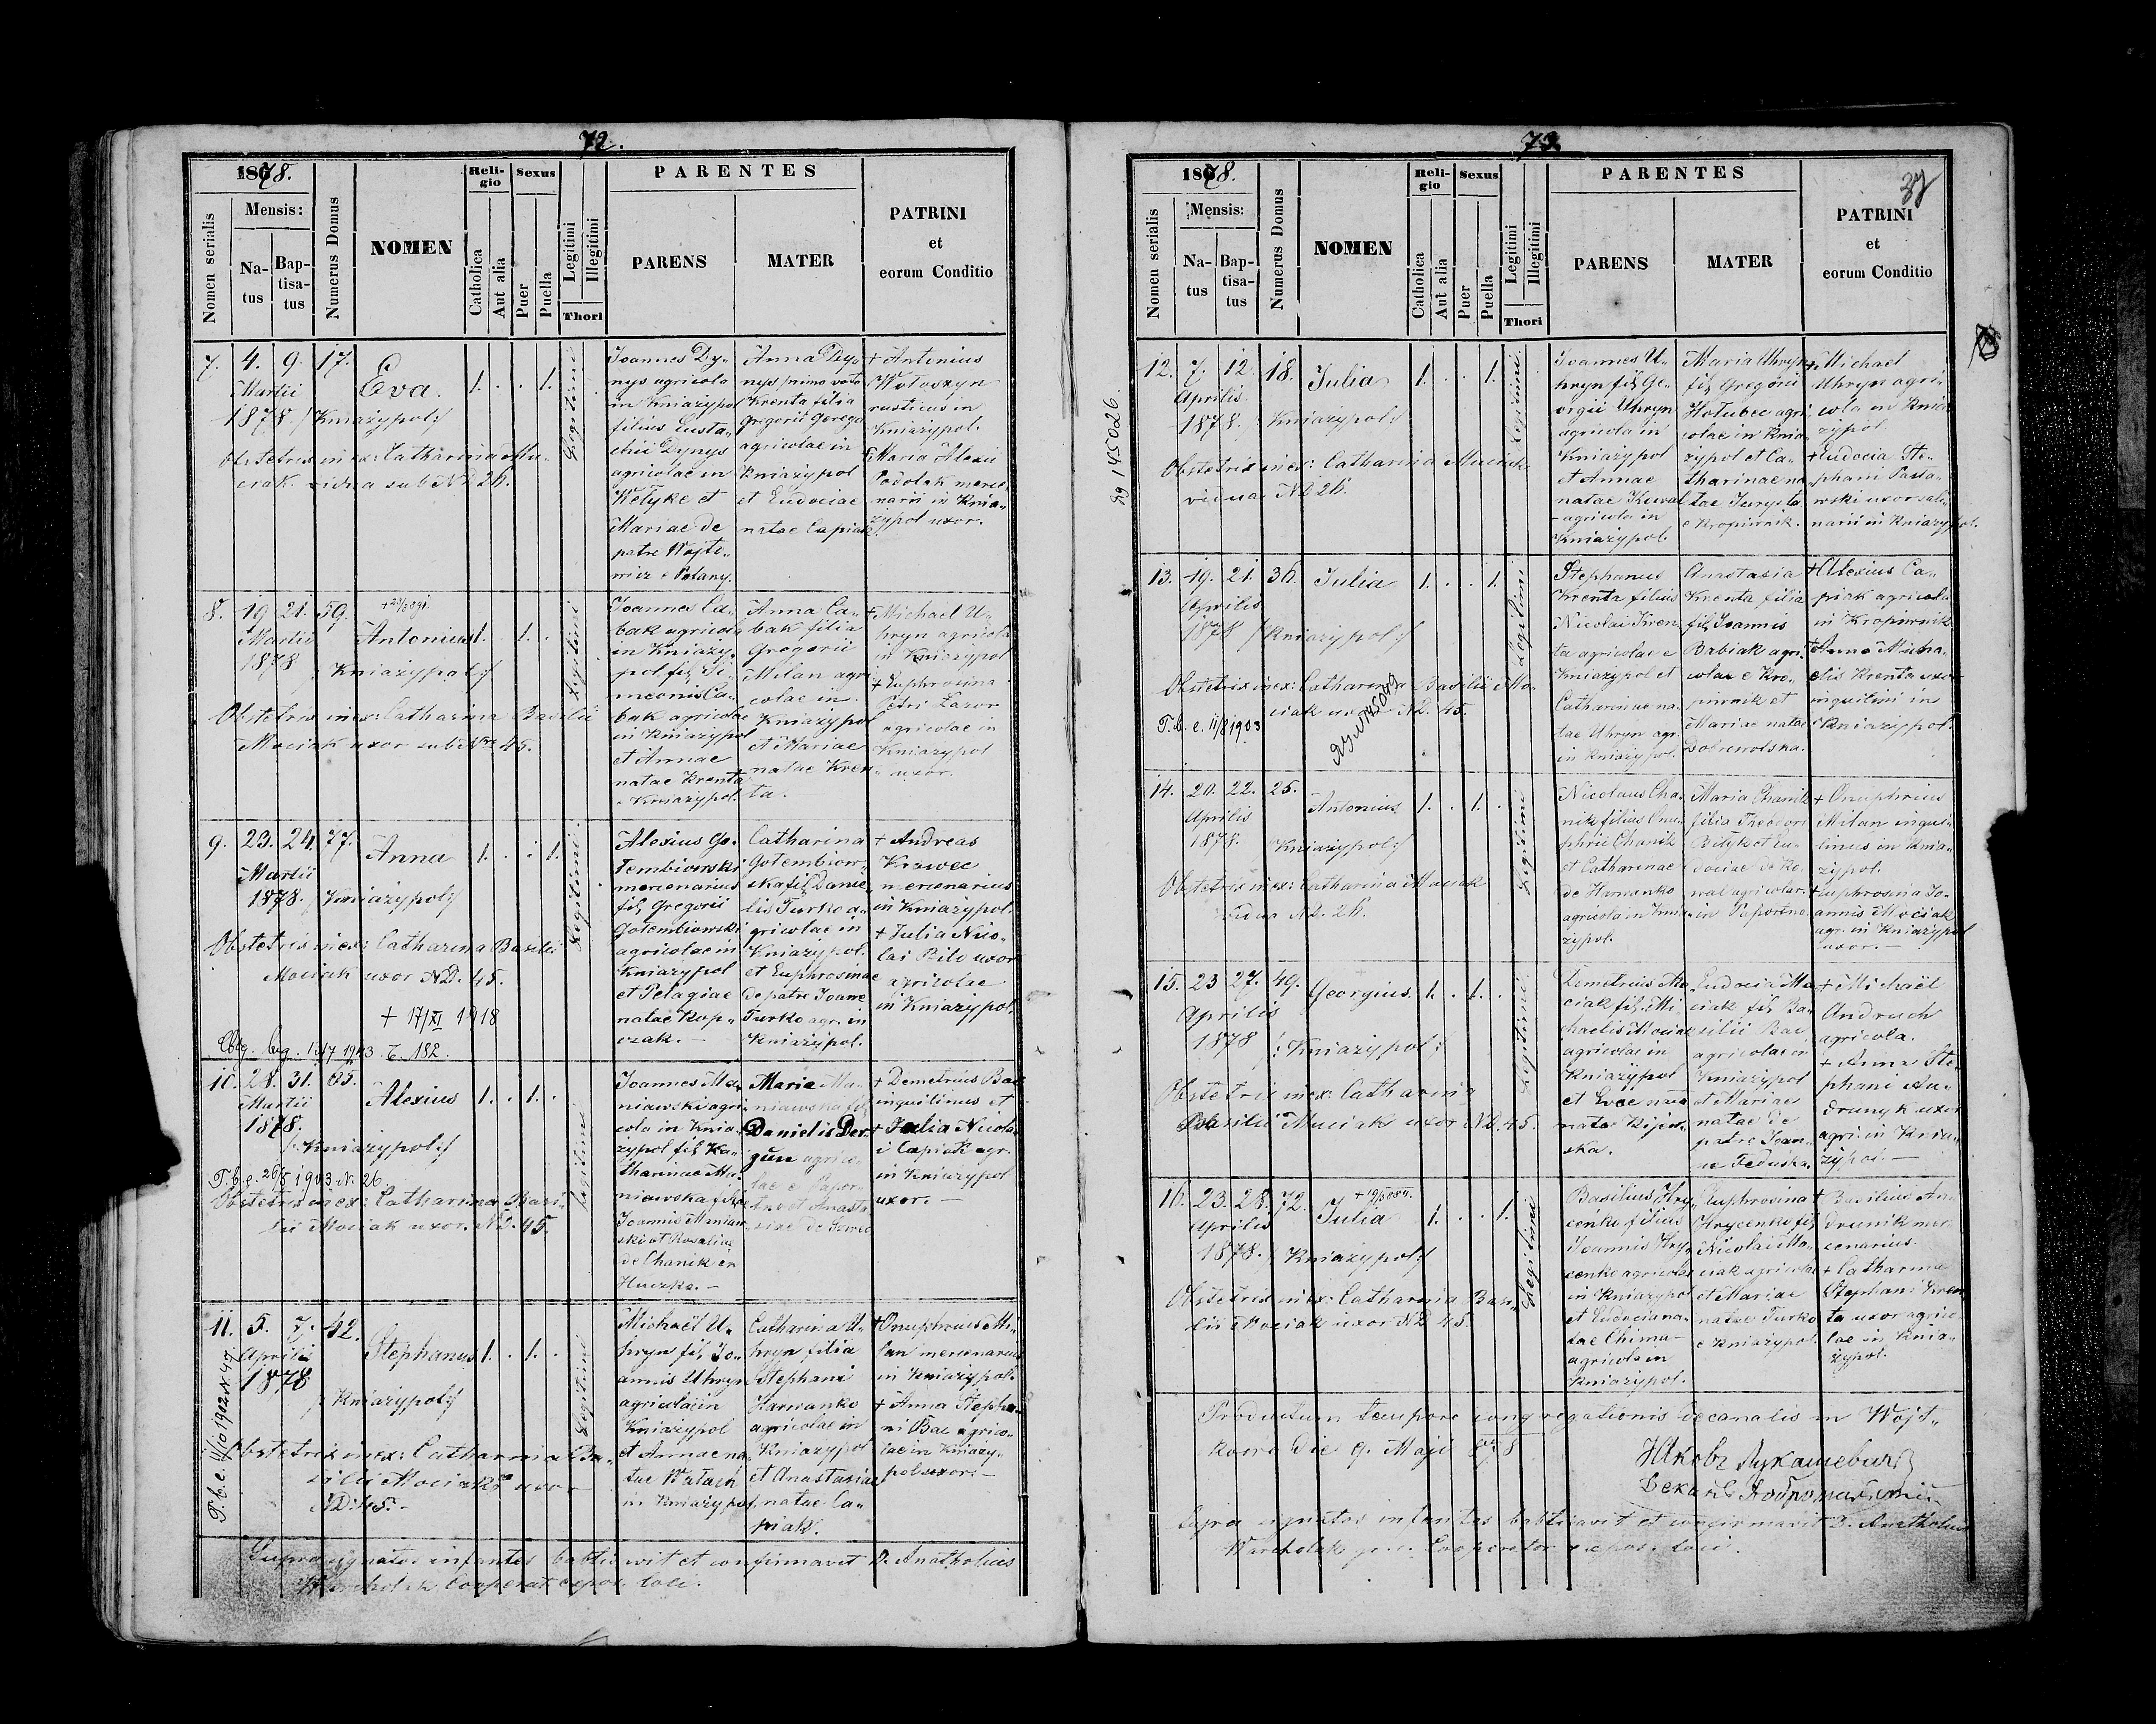 72.
1878.
Nomen serialis
Mensis:
Na-
tus
Bap-
tisa-
tus
Numerus Domus
NOMEN
Reli-
gio
Catholica
Aut alia
Sexus
Puer
Puella
Legitimi
Illegitimi
Thori
PARENTES
PARENS
MATER
PATRINI
et
eorum Conditio
7. 4. 9. 17.
Martii
1878.
Eva.
/:Kniazypol:/
1. . . 1.
Legitimi
Obstetrix inex: Catharina Mo„
ciak vidua sub ND 26.
Joannes Dy„
nys agricola
in Kniazypol
filius Eusta„
chii Dynys
agricolae in
Mariae de
patre Wojto„
wicz e Polany.
Anna Dy„
nys primo voto
Krenta filia
Gregorii
agricolae in
Kniazypol
et Eudociae
natae Capiak
+ Antonius
Wołoszyn
rusticus in
Kniazypol.
+ Maria Alexii
Podolak merce„
narii in Knia„
zypol uxor.
8. 19 21. 59.
Martii
1878
Antonius
/:Kniazypol:/
1. . 1. .
Legitimi
Obstetrix inex: Catharina Basilii
Mociak uxor sub Nro 45.
Joannes Ca„
bak agricola
in Kniazy„
pol fil. Si„
meonis Ca„
bak agricolae
in Kniazypol
et Annae
natae Krenta
e Kniazypol.
Anna Ca„
bak filia
Gregorii
Milan agri
colae in
Kniazypol
et Mariae
natae Kren„
ta.
+ Michael U„
hryn agricola
in Kniazypol
+ Euphrosina
Petri Lazor
agricolae in
Kniazypol
uxor.
9. 23. 24. 77.
Martii
1878.
Anna
/:Kniazypol:/
1. . . 1.
Legitimi
Obstetrix inex: Catharina Basilii
Mociak uxor ND. 45.
+ 17/XI 1918
Alexius Go„
łembiowski
mercenarius
fil. Gregorii
Gołembiowski
agricolae in
Kniazypol
et Pelagiae
natae Kop„
czak. –
Catharina
Gołembiow„
ska fil. Danie„
lis Turko a„
gricolae in
Kniazypol.
et Euphrosinae
de patre Joanne
Turko agr. in
Kniazypol.
+ Andreas
Krzwec
mercenarius
in Kniazypol.
+ Julia Nico„
lai Bilo uxor
agricolae
in Kniazypol.
10. 28. 31. 65.
Martii
1878.
Alexius
/:Kniazypol:/
1. . 1. .
Legitimi
T. b. e. 26/5 1903 N. 26.
Obstetrix inex: Catharina Basi„
lii Mociak uxor. ND. 45.
Joannes Ma„
niawski agri„
cola in Knia„
zypol fil. Ka„
tharinae Ma„
niawska filiae
Joannis Maniaw
ski et Rosaliae
de Chanik in
Huczka. –
Maria Ma„
niawska fil.
Danielis Der„
gun agrico„
+ Demetrius Bac
inquilinus et
+ Julia Nicola
i Capiak agr.
in Kniazypol
uxor. –
11. 5. 7. 42.
Aprilis
1878
Stephanus
/:Kniazypol:/
1. . 1. .
Legitimi
Obstetrix inex: Catharina Ba„
silii Mociak uxor
ND. 45. –
Michaël U„
hryn fil. Jo„
annis Uhryn
agricola in
Kniazypol
et Annae na„
tae Wałach
in Kniazypol.
Catharina U„
hryn filia
Stephani
Harwanko
agricolae in
Kniazypol
et Anastasiae
natae Ca„
piak.
+ Onuphrius Mi„
lan mercenarius
in Kniazypol.
+ Anna Stepha„
ni Bac agrico„
lae in Kniazy„
pol uxor. –
Supra signatos infantes babtisavit et confirmavit D. Anatholius
73.
37
1878.
Nomen serialis
Mensis:
Na-
tus
Bap-
tisa-
tus
Numerus Domus
NOMEN
Reli-
gio
Catholica
Aut alia
Sexus
Puer
Puella
Legitimi
Illegitimi
Thori
PARENTES
PARENS
MATER
PATRINI
et
eorum Conditio
12. 7. 12. 18.
Aprilis
1878.
Julia
/:Kniazypol:/
1. . . 1.
Legitimi
Obstetrix inex: Catharina Mociak
vidua ND 26.
Joannes U„
hryn fil. Ge„
orgii Uhryn
agricola in
Kniazypol
et Annae
natae Kowal
agricola in
Kniazypol.
Maria Uhryn
fil. Gregorii
Hołubec agri„
colae in Knia„
zypol et Ca„
tharinae na
tae Jurysta
e Kropiwnik.
+ Michael
Uhryn agri„
cola in Knia
zypol
+ Eudocia Ste„
phani Pasła„
wski uxor sali„
narii in Kniazypol.
13. 19. 21. 36.
Aprilis
1878
Julia
/:Kniazypol:/
1. . . 1.
Legitimi
Obstetrix inex: Catharina Basilii Mo„
ciak uxor ND. 45.
T. b. e. 11/8 1903
Stephanus
Krenta filius
Nicolai Kren„
ta agricolae e
Kniazypol et
Catharinae na„
tae Uhryn agr.
in Kniazypol.
Anastasia
Krenta filia
fil. Joannis
Babiak agri„
colae e Kro„
piwnik et
Mariae natae
Dobrowolska.
+ Alexius Ca„
piak agricola
in Kropiwnik
+ Anna Micha„
elis Krenta uxor
inquilini in
Kniazypol.
14. 20. 22. 25.
Aprilis
1878.
Antonius
/:Kniazypol:/
1. . 1. .
Legitimi
Obstetrix inex: Catharina Mociak
vidua ND. 26.
Nicolaus Cha„
nik filius Onu„
phrii Chanik
et Catharinae
de Harwanko
agricola in Knia„
zypol.
Maria Chanik
filia Theodori
Bilyk et Eu„
dociae de Ko„
wal agricolar.
in Paportno.
+ Onuphrius
Milan inqui„
linus in Knia„
zypol.
+ Euphrosina Jo„
annis Mociak
agr. in Kniazypol
uxor. –
15. 23 27. 49.
Aprilis
1878
Georgius.
/:Kniazypol:/
1. . 1. .
Legitimi
Obstetrix inex: Catharina
Basilii Mociak uxor ND. 45.
Demetrius Mo„
ciak fil. Mi„
chaelis Mociak
agricolae in
Kniazypol
et Evae
natae Kijow„
ska.
Eudocia Mo
ciak fil. Ba„
silii Bac
agricolae in
Kniazypol
et Mariae
natae de
patre Joan„
ne Feduska.
+ Michaël
Andruch
agricola.
+ Anna Ste„
phani An„
drunyk uxor
agri. in Knia„
zypol. –
16. 23. 28. 72.
Aprilis
1878.
Julia
/:Kniazypol:/
1. . . 1.
Legitimi
Obstetrix inex: Catharina Basi„
lii Mociak uxor ND 45.
Basilius Hry„
cenko filius
Joannis Hry„
cenko agricolae
in Kniazypol
et Eudociae na„
tae Chimu–
agricola in
Kniazypol.
Euphrosina
Hrycenko fil.
Nicolai Mo„
ciak agricolae
et Mariae
natae Turko
e Kniazypol.
+ Basilius An„
drunik mer„
cenarius.
+ Catharina
Stephani Kren„
ta uxor agrico
lae in Knia„
zypol.
Productum tempore congregationis decanalis in Wojt„
kowa die 9. Maji 878
Яковъ Лукашевичъ
Деканъ Добромильскій
Supra signatos infantes babtisavit et confirmavit D. Anatholius